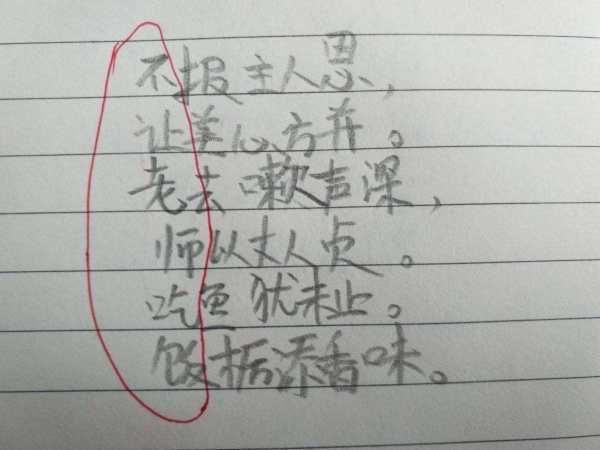 不报主人恩,
让美心方弃。
老去嗽声深,
师以丈人贞。
吃鱼犹未止。
饭栃添香味。